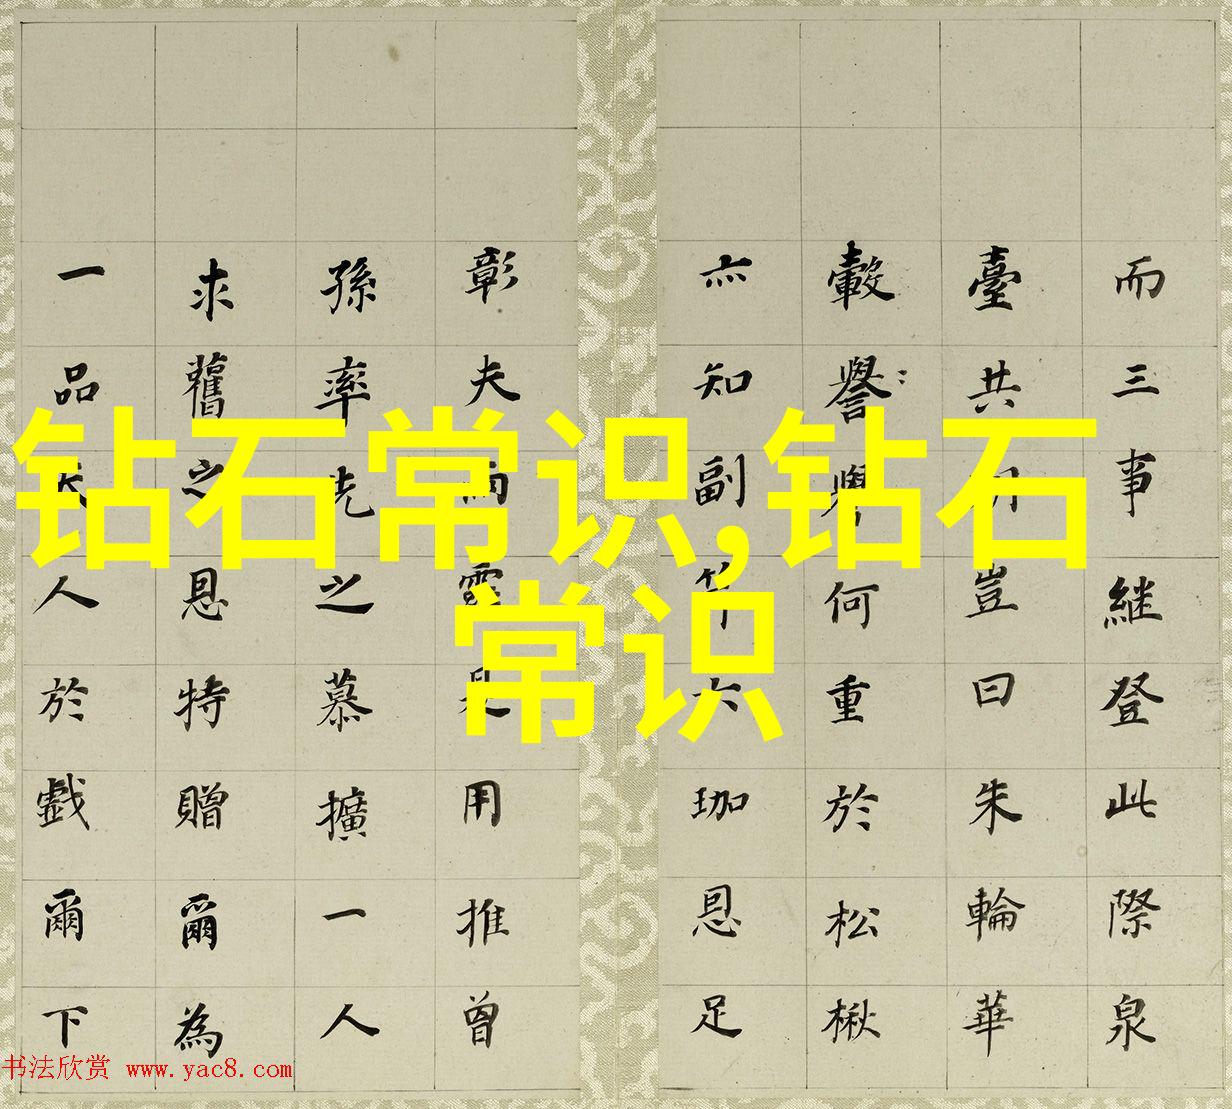 而三事継登此際泉
臺共豈曰朱輪華
轂譽何重於松楸
亦知副笄六珈恩足
彰夫用推曾
孫率先之慕擴一人
求舊之恩特贈爾為
一品夫人於戲爾下
钻石常识,钻石
常识
书法欣赏 www.yac8.com